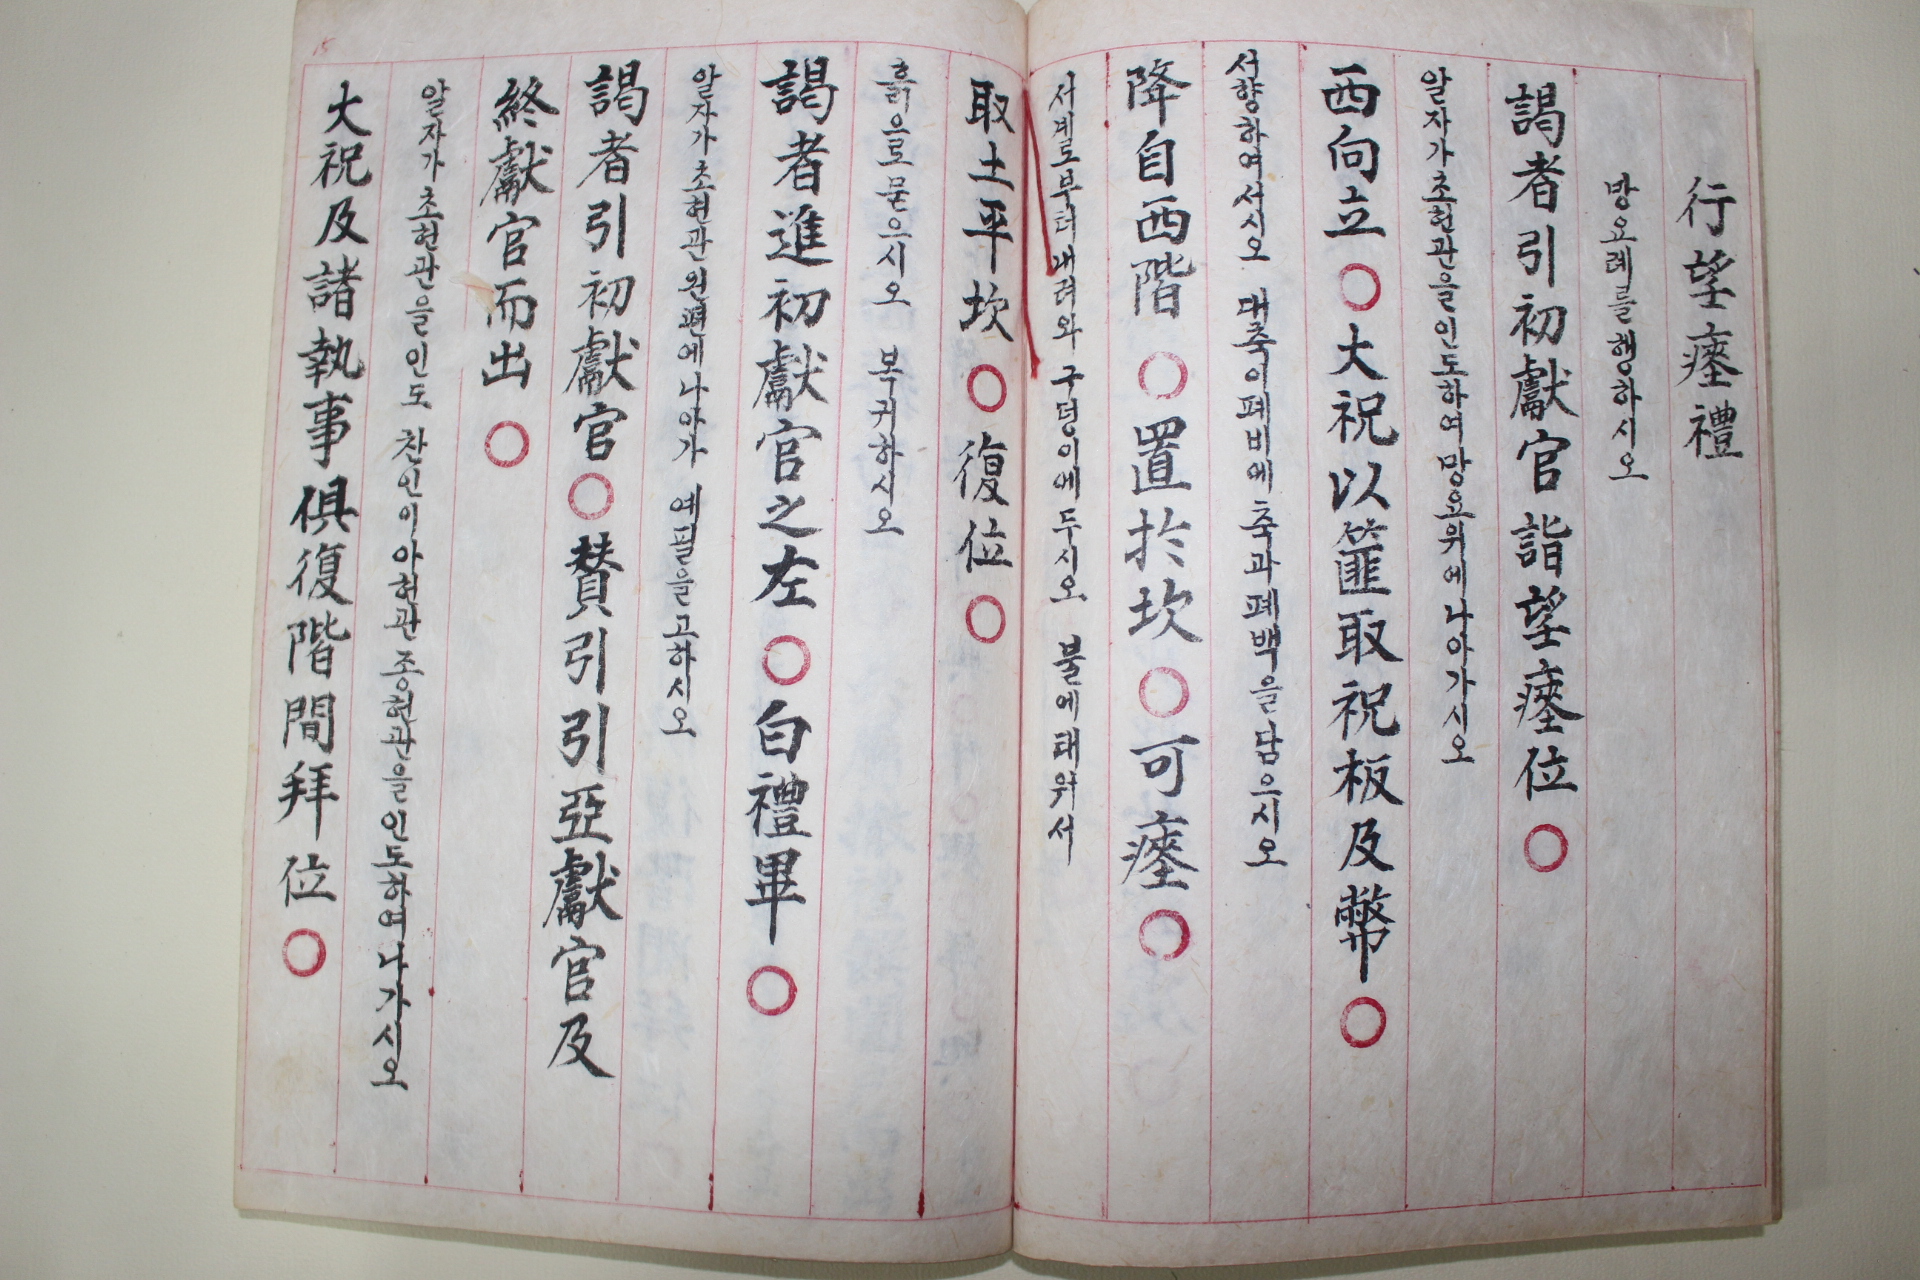 行望瘞禮
망요례를행하시오
謁者引初獻官詣望瘞位○
알자가초헌관을인도하여망요위에나아가시오
西向立○大祝以篚取祝板及幣○
서향하여서시오 대축이폐비에축과폐백을담으시오
降自西階○置於坎○可瘞○
서계로부터내려와구덩이에두시오 불에태워서
取土平坎○復位○
흙으로묻으시오 복귀하시오
謁者進初獻官之左○白禮畢○
알자가초헌관왼편에나아가 예필을고하시오
謁者引初獻官○賛引引亞獻官及
終獻官而出○
알자가초헌관을인도 찬인이아헌관종헌관을인도하여나가시오
大祝及諸執事俱復階間拜位○
15